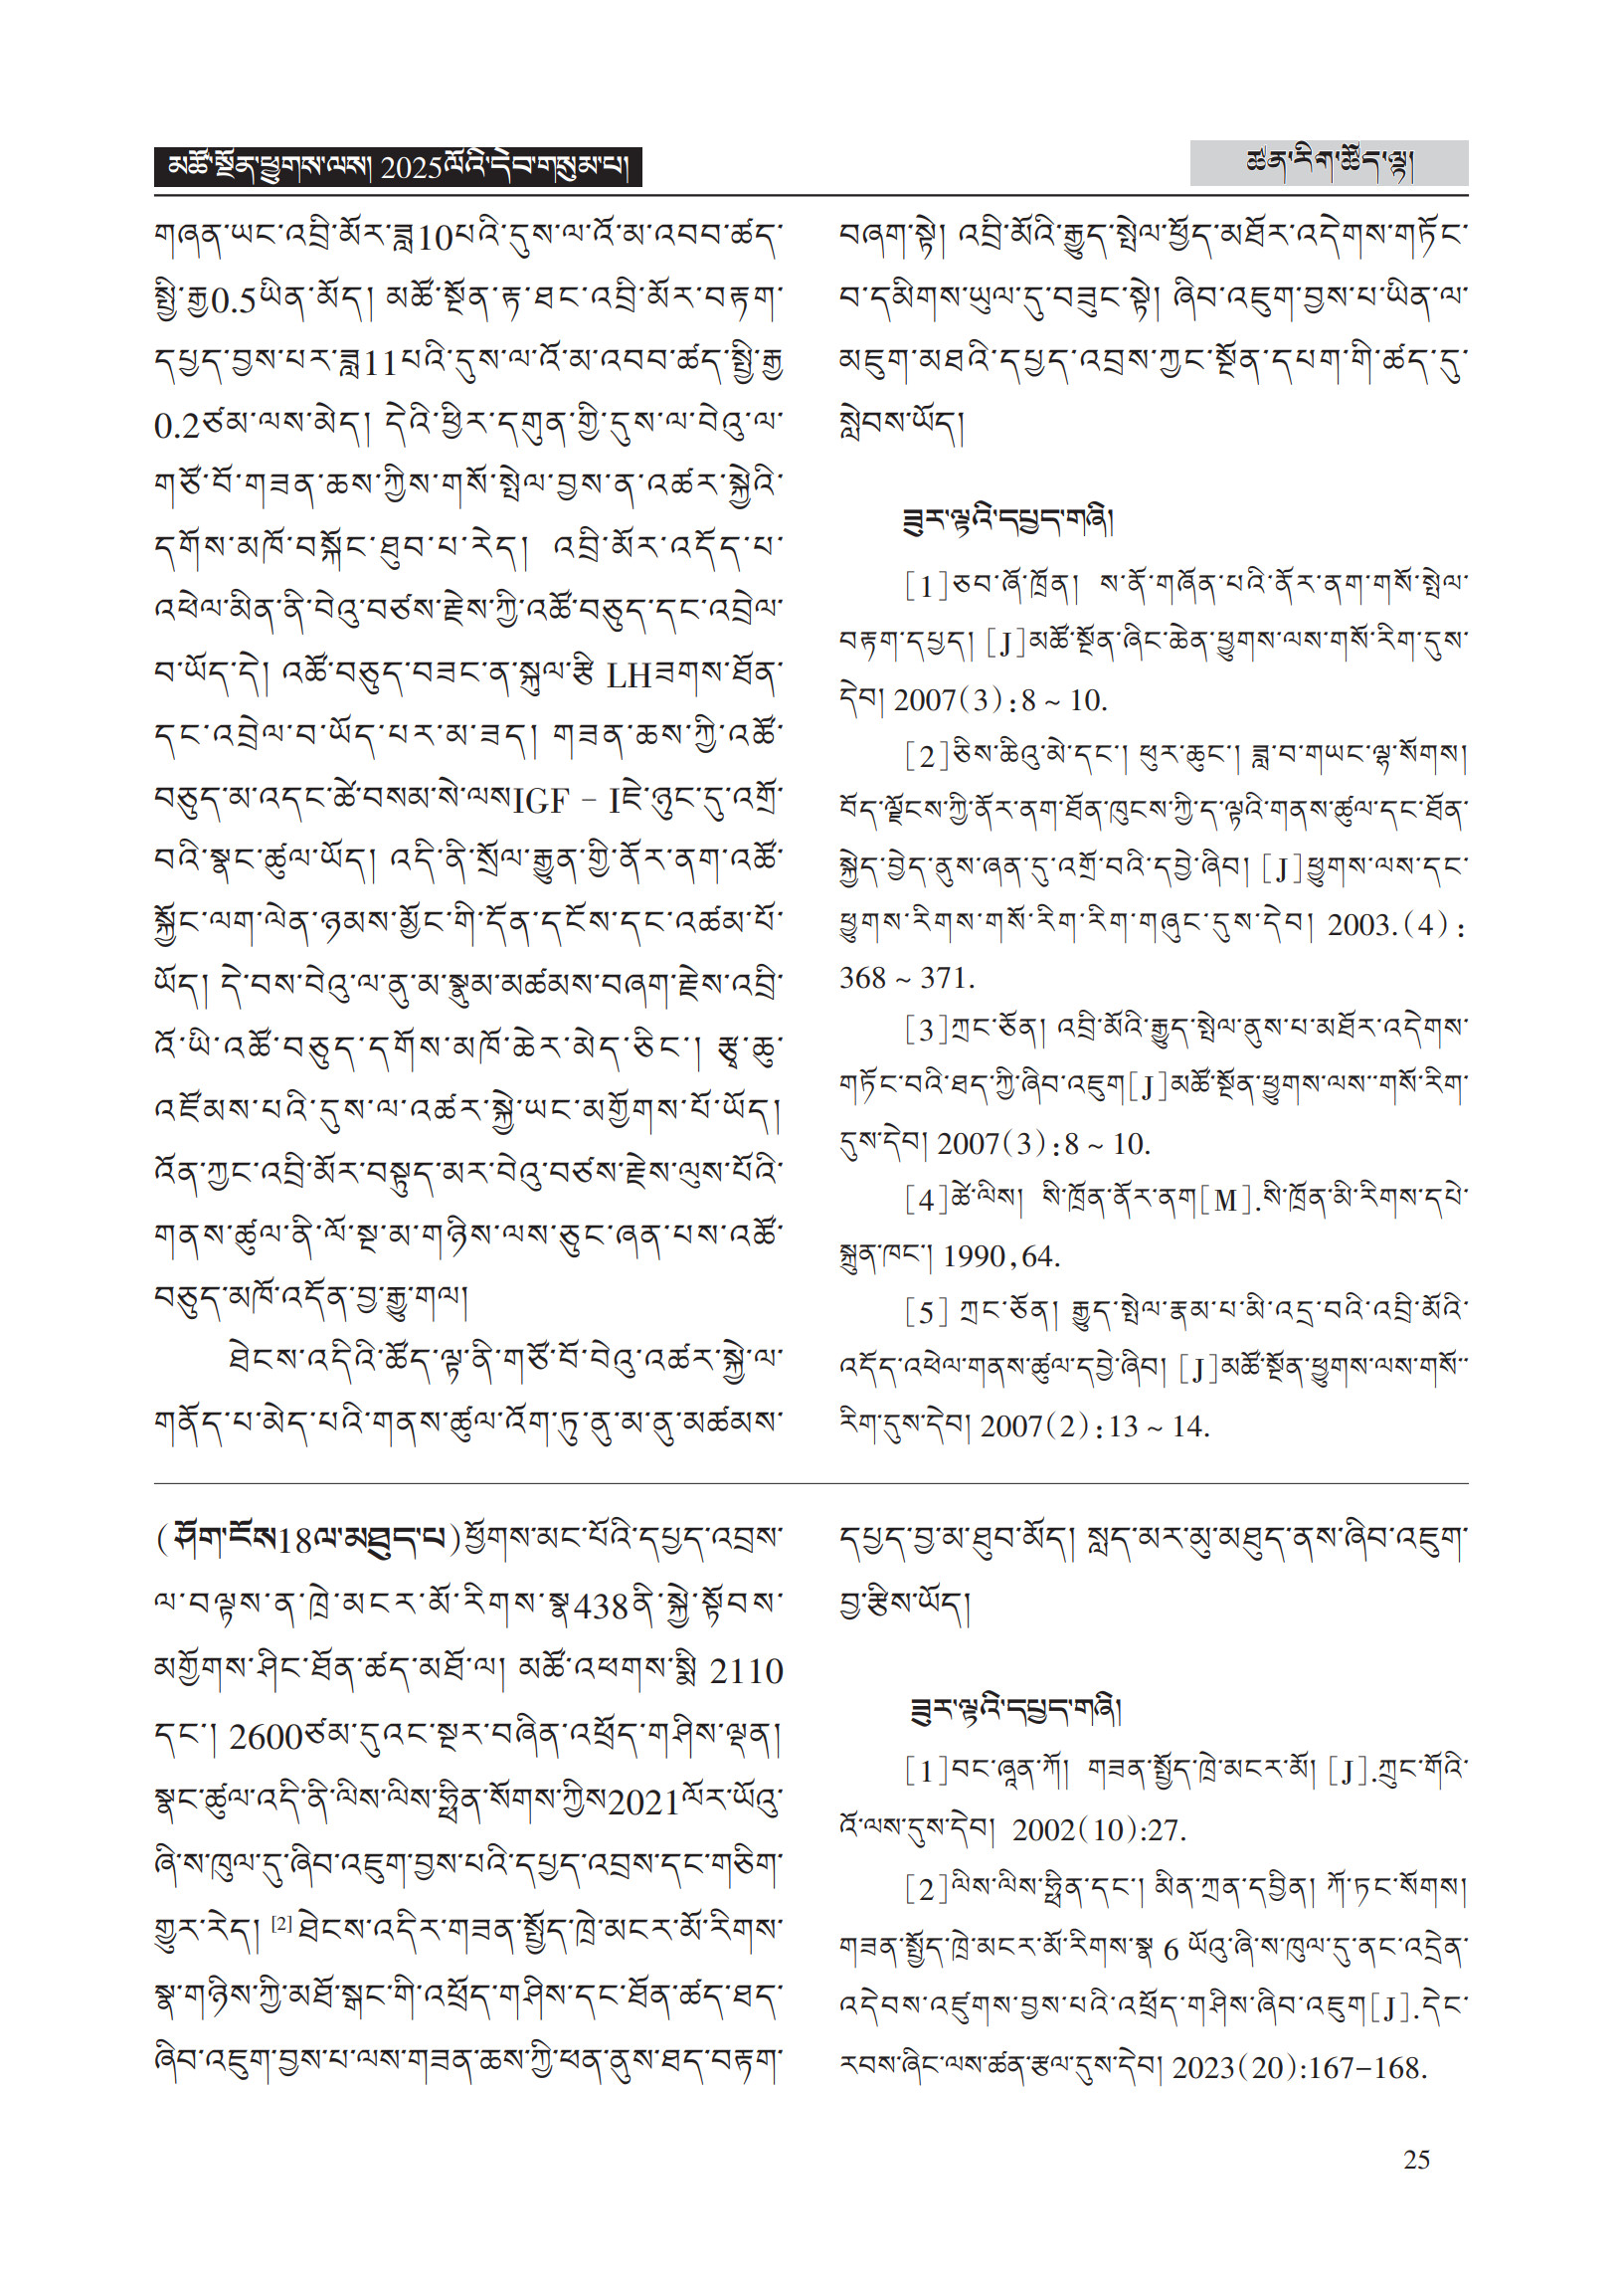 མཚོ་སྔོན་ཕྱུགས་ལས། 2025ལོའི་དེབ་གསུམ་པ།
ཚན་རིག་ཚོད་ལྟ།
གཞན་ཡང་འབྲི་མོར་ཟླ10པའི་དུས་ལ་འོ་མ་འབབ་ཚད་
སྤྱི་རྒྱ0.5ཡིན་མོད། མཚོ་སྔོན་རྟ་ཐང་འབྲི་མོར་བརྟག་
དཔྱད་བྱས་པར་ཟླ11པའི་དུས་ལ་འོ་མ་འབབ་ཚད་སྤྱི་རྒྱ
0.2ཙམ་ལས་མེད། དེའི་ཕྱིར་དགུན་གྱི་དུས་ལ་བེའུ་ལ་
གཙོ་བོ་གཟན་ཆས་ཀྱིས་གསོ་སྤེལ་བྱས་ན་འཚར་སྐྱེའི་
དགོས་མཁོ་བསྐོང་ཐུབ་པ་རེད། འབྲི་མོར་འདོད་པ་
འཕེལ་མིན་ནི་བེའུ་བཙས་རྗེས་ཀྱི་འཚོ་བཅུད་དང་འབྲེལ་
བ་ཡོད་དེ། འཚོ་བཅུད་བཟང་ན་སྐུལ་རྩི LHཟགས་ཐོན་
དང་འབྲེལ་བ་ཡོད་པར་མ་ཟད། གཟན་ཆས་ཀྱི་འཚོ་
བཅུད་མ་འདང་ཚེ་བསམ་སེ་ལསIGF – Iཇེ་ཉུང་དུ་འགྲོ་
བའི་སྣང་ཚུལ་ཡོད། འདི་ནི་སྲོལ་རྒྱུན་གྱི་ནོར་ནག་འཚོ་
སྐྱོང་ལག་ལེན་ཉམས་མྱོང་གི་དོན་དངོས་དང་འཚམ་པོ་
ཡོད། དེ་བས་བེའུ་ལ་ནུ་མ་སྣུམ་མཚམས་བཞག་རྗེས་འབྲི་
འོ་ཡི་འཚོ་བཅུད་དགོས་མཁོ་ཆེར་མེད་ཅིང་། རྩྭ་ཆུ་
འཛོམས་པའི་དུས་ལ་འཚར་སྐྱེ་ཡང་མགྱོགས་པོ་ཡོད།
འོན་ཀྱང་འབྲི་མོར་བསྟུད་མར་བེའུ་བཙས་རྗེས་ལུས་པོའི་
གནས་ཚུལ་ནི་ལོ་སྔ་མ་གཉིས་ལས་ཅུང་ཞན་པས་འཚོ་
བཅུད་མཁོ་འདོན་བྱ་རྒྱུ་གལ།
ཐེངས་འདིའི་ཚོད་ལྟ་ནི་གཙོ་བོ་བེའུ་འཚར་སྐྱེ་ལ་
གནོད་པ་མེད་པའི་གནས་ཚུལ་འོག་ཏུ་ནུ་མ་ནུ་མཚམས་
བཞག་སྟེ། འབྲི་མོའི་རྒྱུད་སྤེལ་ཕྱོད་མཐོར་འདེགས་གཏོང་
བ་དམིགས་ཡུལ་དུ་བཟུང་སྟེ། ཞིབ་འཇུག་བྱས་པ་ཡིན་ལ་
མཇུག་མཐའི་དཔྱད་འབྲས་ཀྱང་སྔོན་དཔག་གི་ཚད་དུ་
སླེབས་ཡོད།
ཟུར་ལྟའི་དཔྱད་གཞི།
[1]ཅབ་ཞོ་ཁྲོན། ས་ནོ་གཞོན་པའི་ནོར་ནག་གསོ་སྤེལ་
བརྟག་དཔྱད། [J]མཚོ་སྔོན་ཞིང་ཆེན་ཕྱུགས་ལས་གསོ་རིག་དུས་
དེབ། 2007(3):8 ~ 10.
[2]ཅིས་ཆིའུ་མེ་དང་། ཕུར་ཆུང་། ཟླ་བ་གཡང་ལྷ་སོགས།
བོད་ལྗོངས་ཀྱི་ནོར་ནག་ཐོན་ཁུངས་ཀྱི་ད་ལྟའི་གནས་ཚུལ་དང་ཐོན་
སྐྱེད་བྱེད་ནུས་ཞན་དུ་འགྲོ་བའི་དབྱེ་ཞིབ། [J]ཕྱུགས་ལས་དང་
ཕྱུགས་རིགས་གསོ་རིག་རིག་གཞུང་དུས་དེབ། 2003.(4):
368 ~ 371.
[3]ཀྲང་ཅོན། འབྲི་མོའི་རྒྱུད་སྤེལ་ནུས་པ་མཐོར་འདེགས་
གཏོང་བའི་ཐད་ཀྱི་ཞིབ་འཇུག[J]མཚོ་སྔོན་ཕྱུགས་ལས་གསོ་རིག་
དུས་དེབ། 2007(3):8 ~ 10.
[4]ཚེ་ལིས། སི་ཁྲོན་ནོར་ནག[M].སི་ཁྲོན་མི་རིགས་དཔེ་
སྐྲུན་ཁང་། 1990,64.
[5] ཀྲང་ཅོན། རྒྱུད་སྤེལ་རྣམ་པ་མི་འདྲ་བའི་འབྲི་མོའི་
འདོད་འཕེལ་གནས་ཚུལ་དབྱེ་ཞིབ། [J]མཚོ་སྔོན་ཕྱུགས་ལས་གསོ་
རིག་དུས་དེབ། 2007(2):13 ~ 14.
(ཤོག་ངོས18ལ་མཐུད་པ)ཕྱོགས་མང་པོའི་དཔྱད་འབྲས་
ལ་བལྟས་ན་ཁྲེ་མངར་མོ་རིགས་སྣ438ནི་སྐྱེ་སྟོབས་
མགྱོགས་ཤིང་ཐོན་ཚད་མཐོ་ལ། མཚོ་འཕགས་སྨི 2110
དང་། 2600ཙམ་དུའང་སྔར་བཞིན་འཕྲོད་གཤིས་ལྡན།
སྣང་ཚུལ་འདི་ནི་ལིས་ལིས་ཧྥིན་སོགས་ཀྱིས2021ལོར་ཡོའུ་
ཞི་ས་ཁུལ་དུ་ཞིབ་འཇུག་བྱས་པའི་དཔྱད་འབྲས་དང་གཅིག་
གྱུར་རེད། [2] ཐེངས་འདིར་གཟན་སྤྱོད་ཁྲེ་མངར་མོ་རིགས་
སྣ་གཉིས་ཀྱི་མཐོ་སྒང་གི་འཕྲོད་གཤིས་དང་ཐོན་ཚད་ཐད་
ཞིབ་འཇུག་བྱས་པ་ལས་གཟན་ཆས་ཀྱི་ཕན་ནུས་ཐད་བརྟག་
དཔྱད་བྱ་མ་ཐུབ་མོད། སླད་མར་མུ་མཐུད་ནས་ཞིབ་འཇུག་
བྱ་རྩིས་ཡོད།
ཟུར་ལྟའི་དཔྱད་གཞི།
[1]བང་ཞཱུན་ཀོ། གཟན་སྤྱོད་ཁྲེ་མངར་མོ། [J].ཀྲུང་གོའི་
འོ་ལས་དུས་དེབ། 2002(10):27.
[2]ལིས་ལིས་ཧྥིན་དང་། མིན་ཀྲན་དབྱིན། ཀོ་ཏང་སོགས།
གཟན་སྤྱོད་ཁྲེ་མངར་མོ་རིགས་སྣ 6 ཡོའུ་ཞི་ས་ཁུལ་དུ་ནང་འདྲེན་
འདེབས་འཛུགས་བྱས་པའི་འཕྲོད་གཤིས་ཞིབ་འཇུག[J].དེང་
རབས་ཞིང་ལས་ཚན་རྩལ་དུས་དེབ། 2023(20):167-168.
25